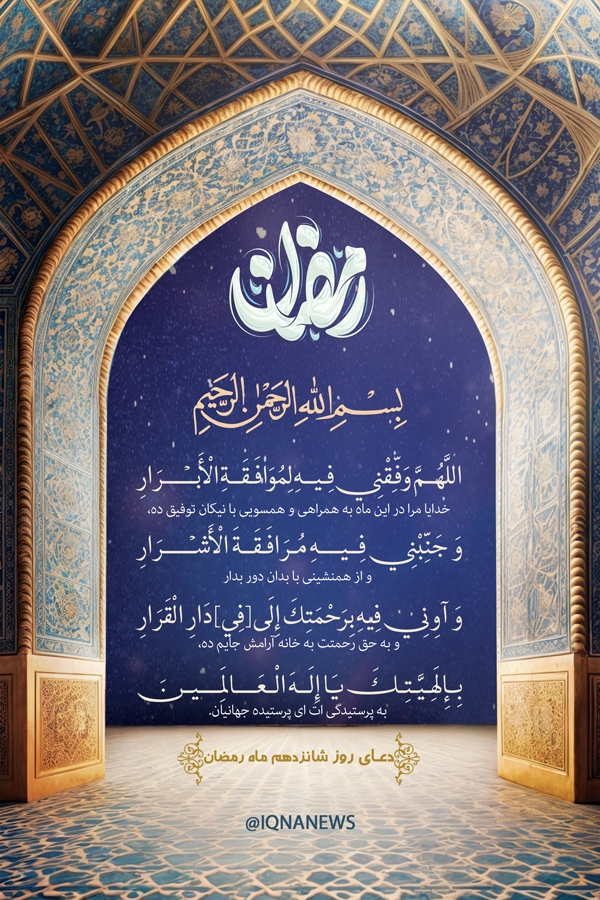 رمضان
بِسْمِ اللهِ الرَّحْمٰنِ الرَّحِيمِ
اللَّهُمَّ وَفِّقْنِي فِيهِ لِمُوَافَقَةِ الْأَبْرَارِ
خدایا مرا در این ماه به همراهی و همسویی با نیکان توفیق ده،
وَ جَنِّبْنِي فِيهِ مُرَافَقَةَ الْأَشْرَارِ
و از همنشینی با بدان دور بدار
وَ آوِنِي فِيهِ بِرَحْمَتِكَ إِلَى [فِي] دَارِ الْقَرَارِ
و به حق رحمتت به خانه آرامش جایم ده،
بِإِلَهِيَّتِكَ يَا إِلَهَ الْعَالَمِينَ
به پرستیدگی ات ای پرستیده جهانیان.
دعای روز شانزدهم ماه رمضان
@IQNANEWS